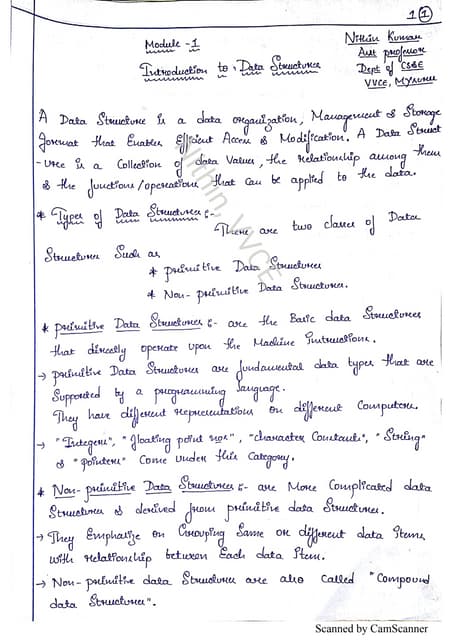 1 (1)
Nithin Kumar
Module -1
Asst professor
Introduction to Data Structures
Dept of CS&E
VVCE, Mysuru
A Data Structure is a data organization, Management & Storage
format that Enables Efficient Access & Modification. A Data Struct
-ure is a Collection of data Values, the relationship among them
& the functions/operations that can be applied to the data.
* Types of Data Structures :-
There are two classes of Data
Structures Such as
* primitive Data Structures
* Non-primitive Data Structures.
Nithin, VVCE
* primitive Data Structures :- are the Basic data Structures
that directly operate upon the Machine Instructions.
→ primitive Data Structures are fundamental data types that are
Supported by a programming language.
They have different representations on different Computers.
→ "Integers", "floating point nos", "character Constants", "String"
& "pointers" Come under this Category.
* Non-primitive Data Structures :- are More Complicated data
Structures & derived from primitive data Structures.
→ They Emphasise on Grouping Same or different data Items
with relationship between Each data Item.
→ Non-primitive data Structures are also Called "Compound
data Structures".
Scanned by CamScanner